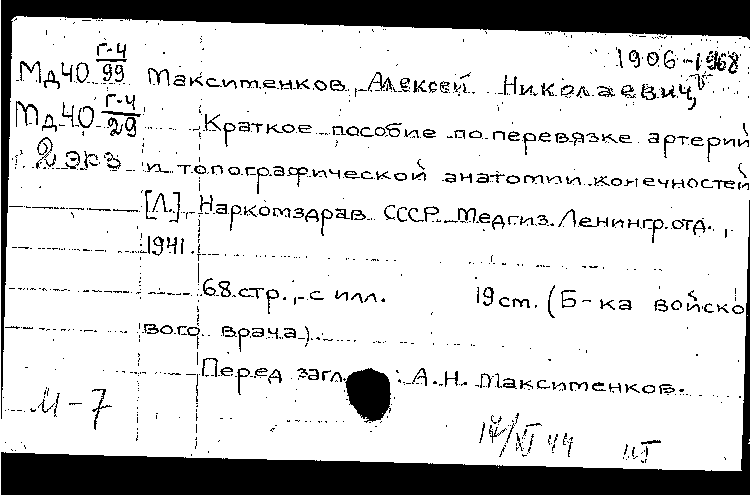 1906-1968
Мд40 Г-4/99 Максименков, Алексей Николаевич,
Мд40 Г-4/29 Краткое пособие по перевязке артерий
2 экз и топографической анатомии конечностей
[Л.], Наркомздрав СССР. Медгиз. Ленингр. отд.,
1941.
68 стр., с илл. 19 см. (Б-ка войско
вого врача).
Перед загл.: А.Н. Максименков.
М-7
17/XI 44